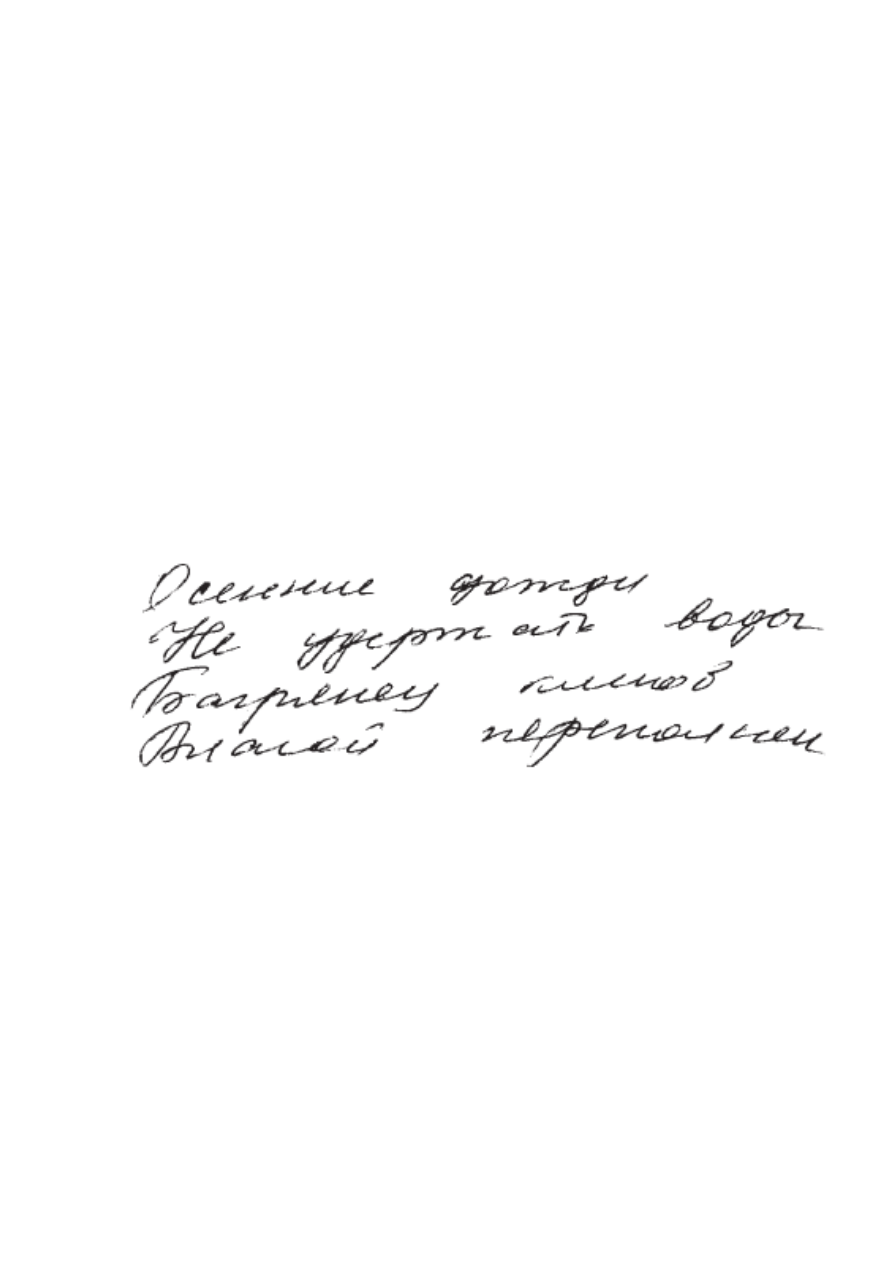 Осенние дожди
Не удержать воды
Багрянец кленов
Влагой переполнен